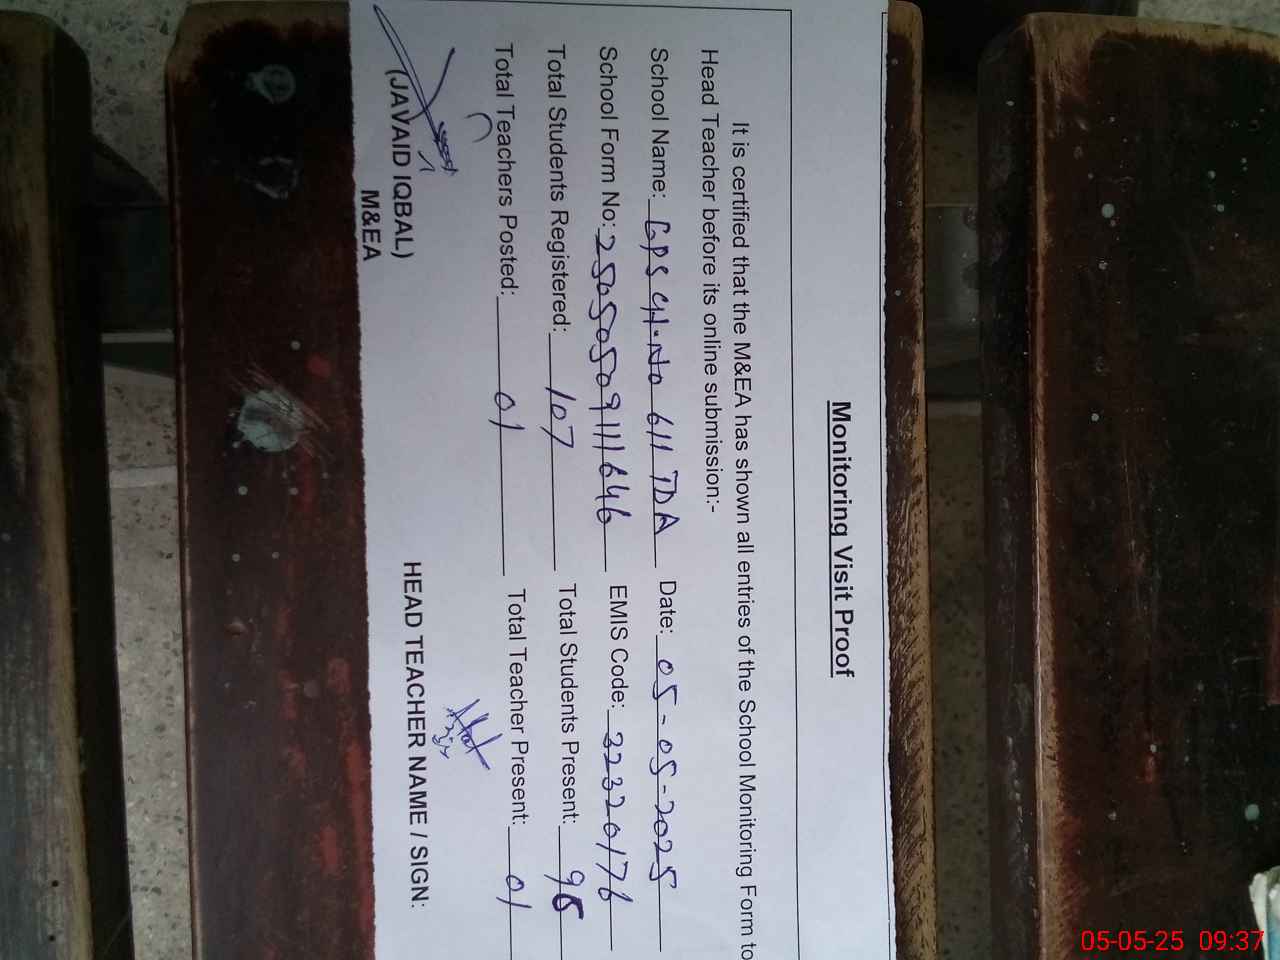 Monitoring Visit Proof
It is certified that the M&EA has shown all entries of the School Monitoring Form to
Head Teacher before its online submission:-
School Name: GPS CH.No 611 TDA Date: 05-05-2025
School Form No: 25050509111646 EMIS Code: 32320176
Total Students Registered: 107 Total Students Present: 96
Total Teachers Posted: 01 Total Teacher Present: 01
(JAVAID IQBAL)
M&EA
HEAD TEACHER NAME / SIGN:
05-05-25 09:37